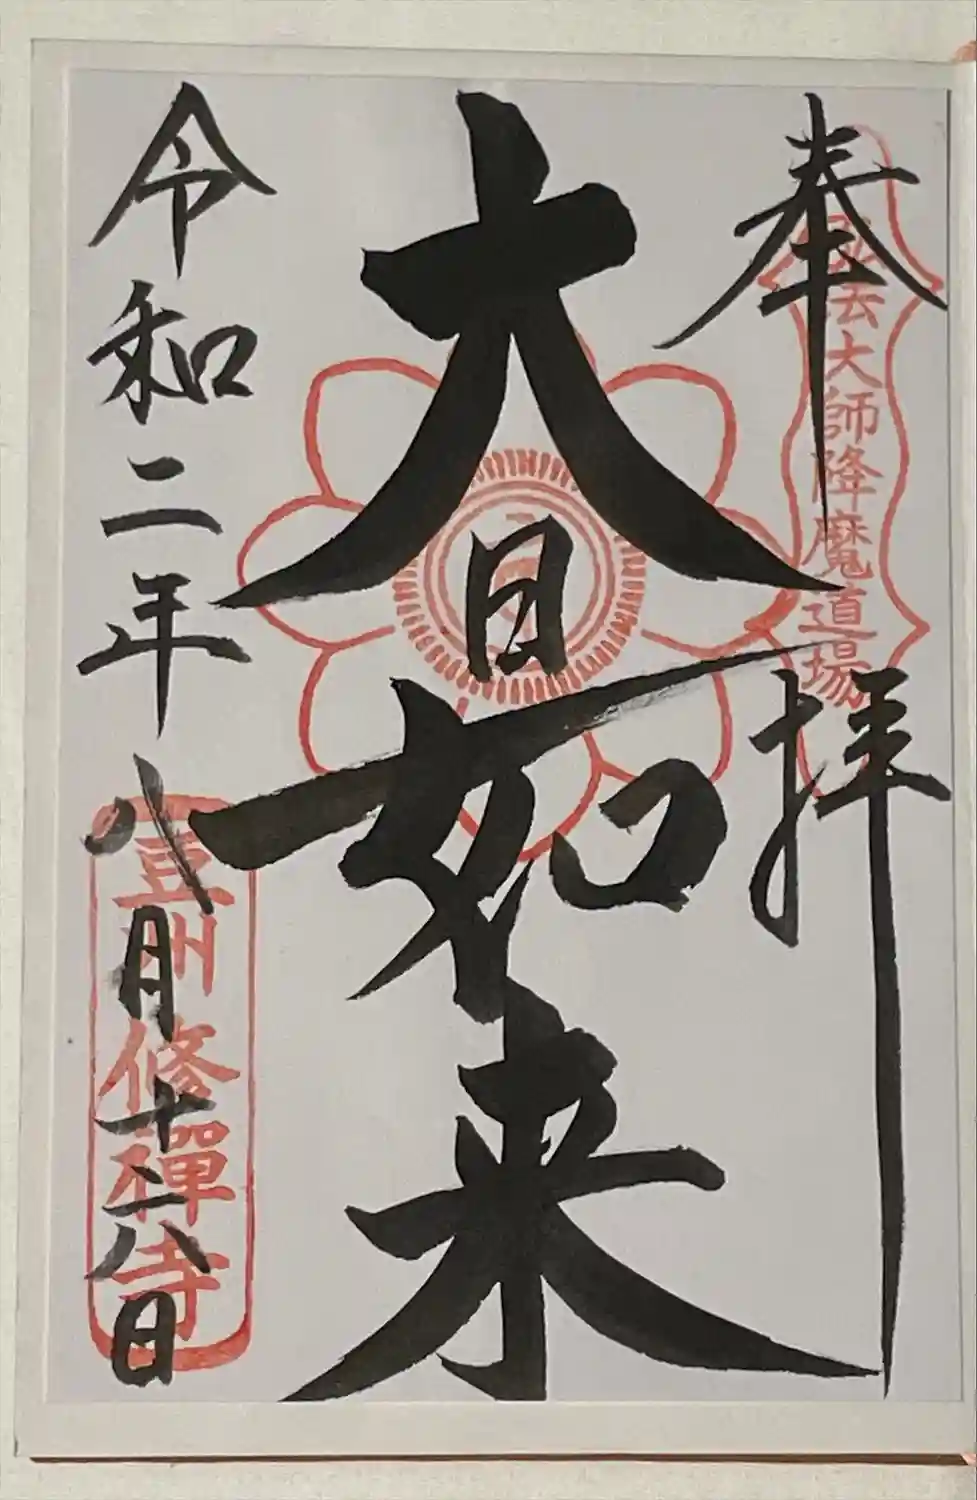 奉拝
弘法大師降魔道場
大日如来
令和二年八月十二八日
豆州修禪寺